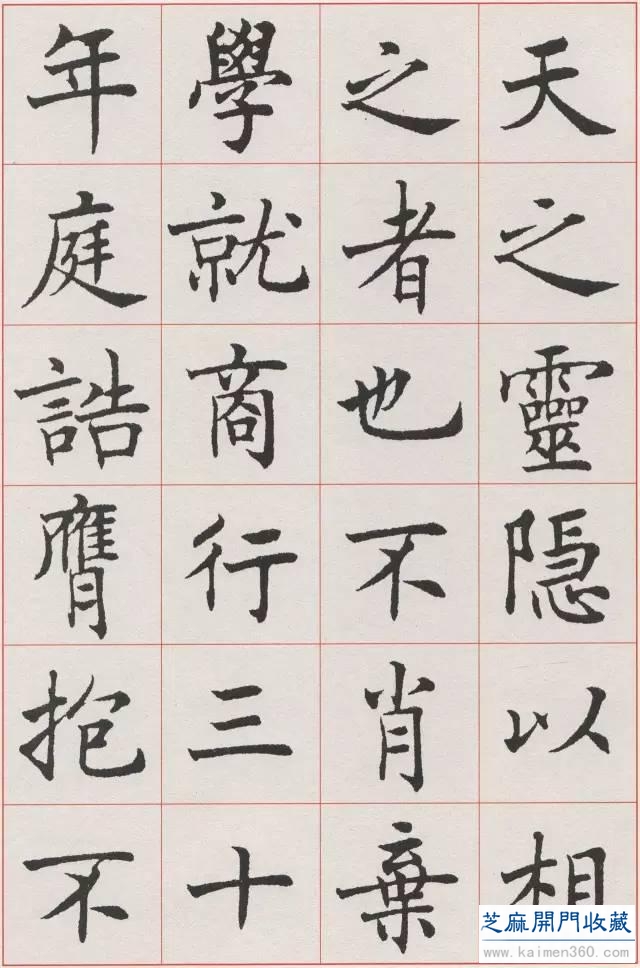 天之靈隱以相
之者也不肖棄
學就商行三十
年庭誥膺抱不
芝麻開門收藏
www.kaimen360.com